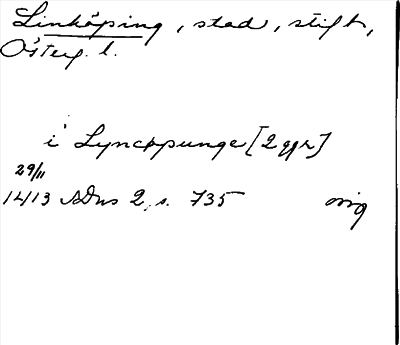 Linköping, stad, stift,
Österg. l.
i Lyncøpunge [2 ggr]
29/11
1413 SDns 2, s. 735 orig